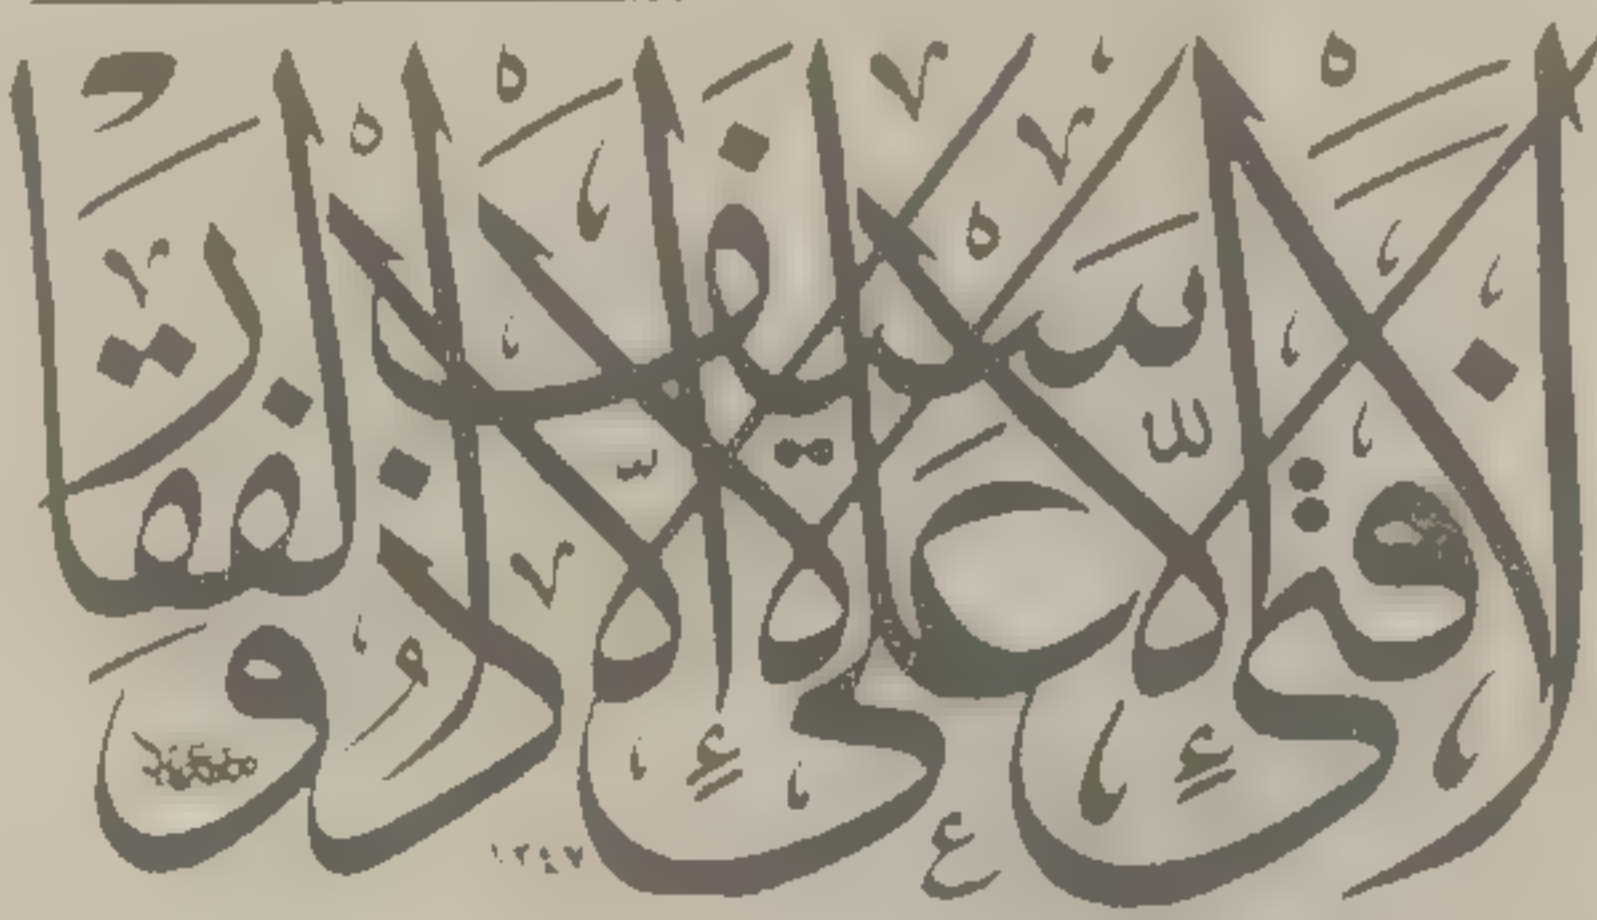 لا فتى إلا علي لا سيف إلا ذو الفقار
١٣٤٧